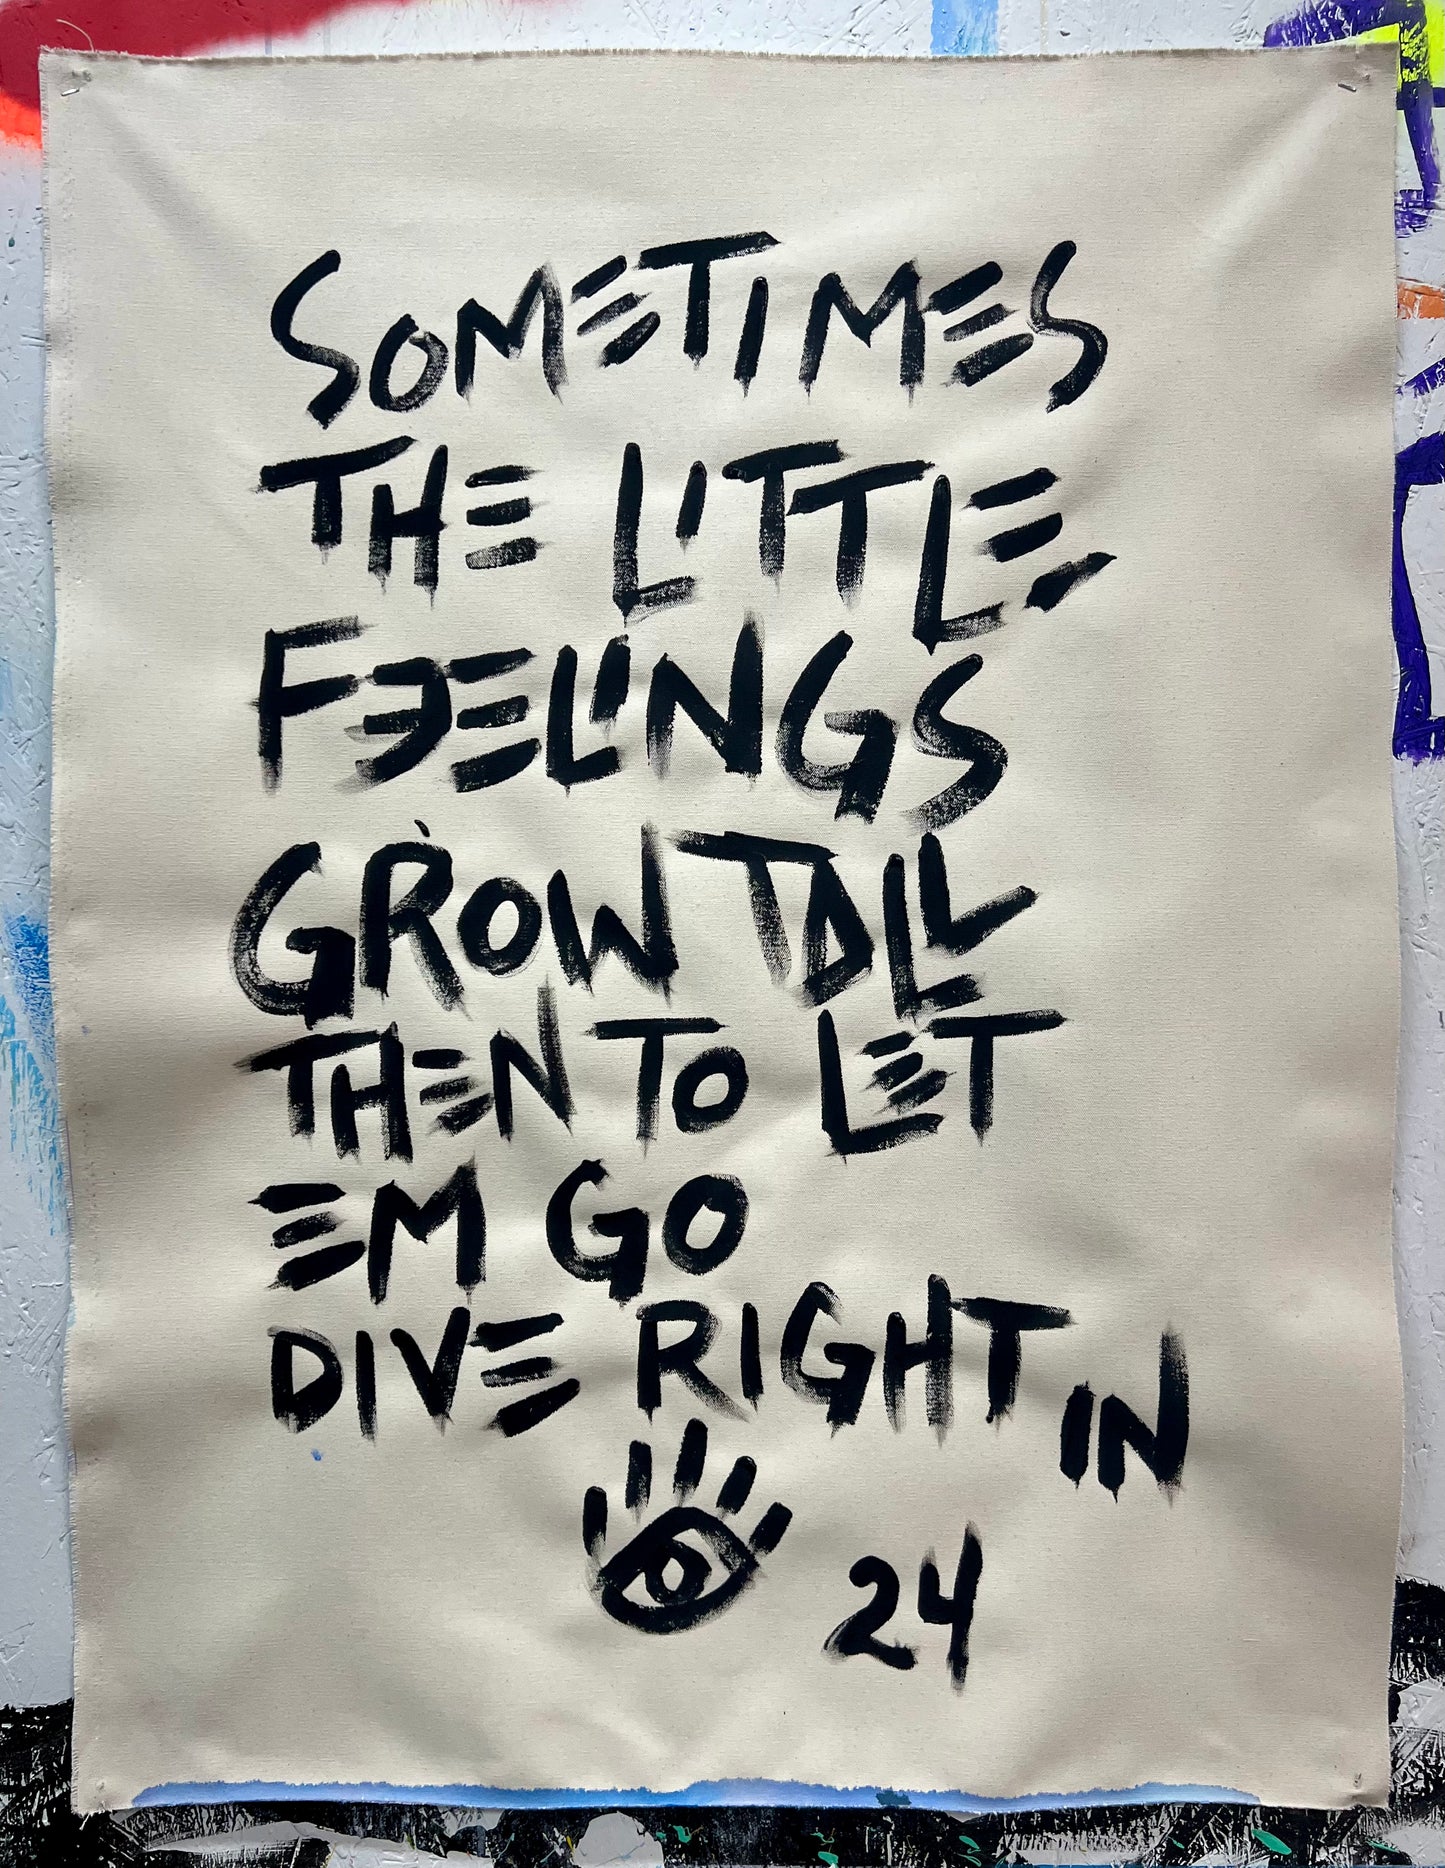 SOMETIMES
THE LITTLE
FEELINGS
GROW TALL
THEN TO LET
EM GO
DIVE RIGHT IN
24